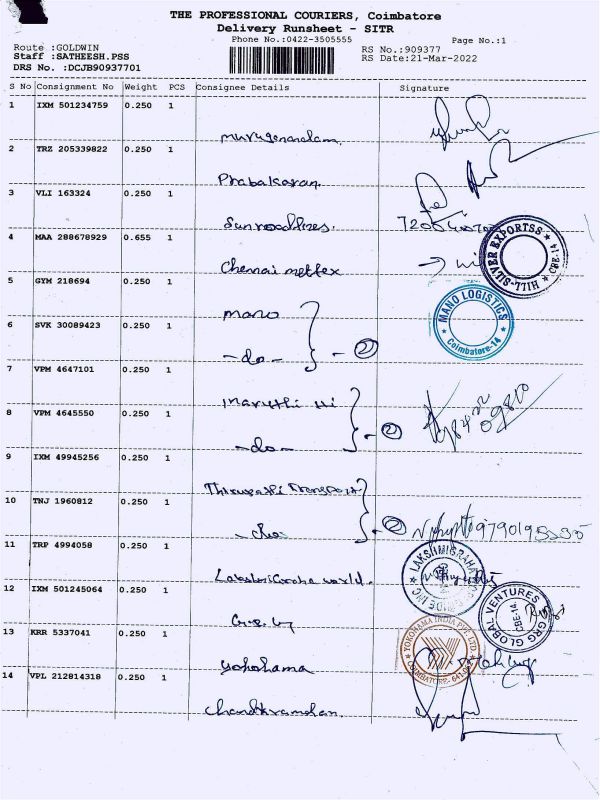 THE PROFESSIONAL COURIERS, Coimbatore
Delivery Runsheet - SITR
Phone No.:0422-3505555
Page No.:1
Route :GOLDWIN
RS No.:909377
Staff :SATHEESH.PSS
RS Date:21-Mar-2022
DRS No. :DCJB90937701
S No Consignment No Weight PCS Consignee Details Signature
1 IXM 501234759 0.250 1
Muruganandam.
2 TRZ 205339822 0.250 1
Prabakaran.
3 VLI 163324 0.250 1
Sun roadlines.
4 MAA 288678929 0.655 1
Chennai meltex
HILL-SILVER EXPORTSS CBE-14
5 GYM 218694 0.250 1
mano
MANO LOGISTICS Coimbatore-14
6 SVK 30089423 0.250 1
-do- - 2
7 VPM 4647101 0.250 1
maruthi
8 VPM 4645550 0.250 1
-do- - 2
9 IXM 49945256 0.250 1
Thirupathi Transport
10 TNJ 1960812 0.250 1
-do- - 2
11 TRP 4994058 0.250 1
Lakshmi Graha world.
12 IXM 501245064 0.250 1
GRG GLOBAL VENTURES CBE-14
13 KRR 5337041 0.250 1
Yokohama
YOKOHAMA INDIA PVT. LTD. COIMBATORE
14 VPL 212814318 0.250 1
Chandhramohan.